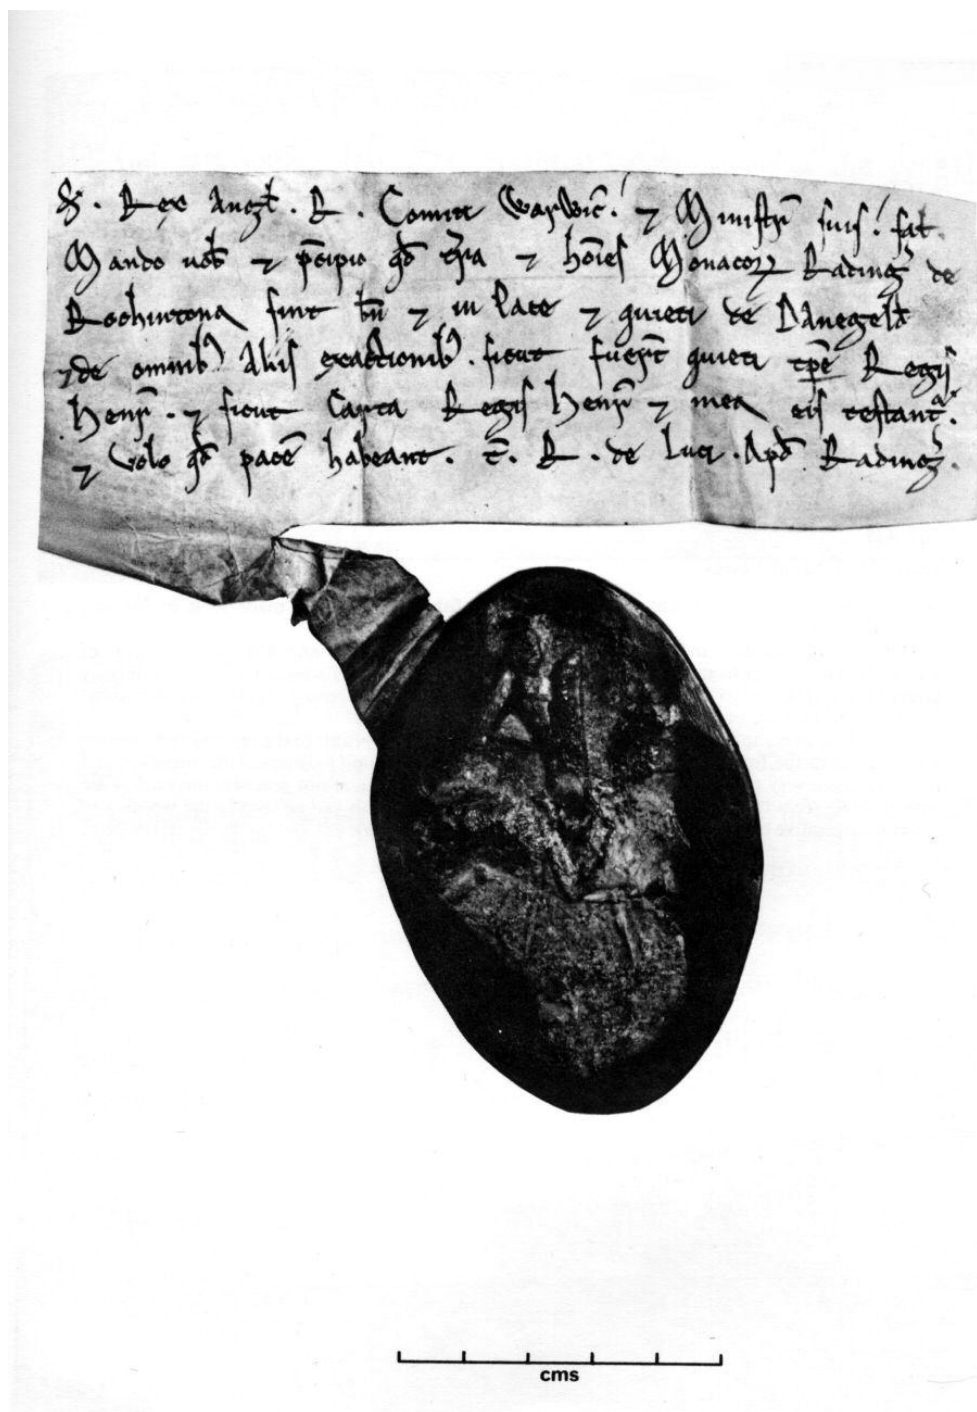 S. Rex Angɫ. R. Comiti Warwic̄. ⁊ Ministr̄ suis. saɫ.
Mando uob̄ ⁊ p̄cipio qd̄ t̄ra ⁊ hōies Monacoꝝ Rading̉ de
Rochintona sint bn̄ ⁊ in Pace ⁊ quieti de Danegeld̄
⁊ de omnibꝰ Aliis exactionibꝰ. sicut fuer̄t quieti tp̄e Regis
Henr̄. ⁊ sicut Carta Regis Henr̄ ⁊ mea eis testant᷑.
⁊ Volo qd̄ pacē habeant. T̄. R. de Luci. Apd̄ Rading̉.
cms